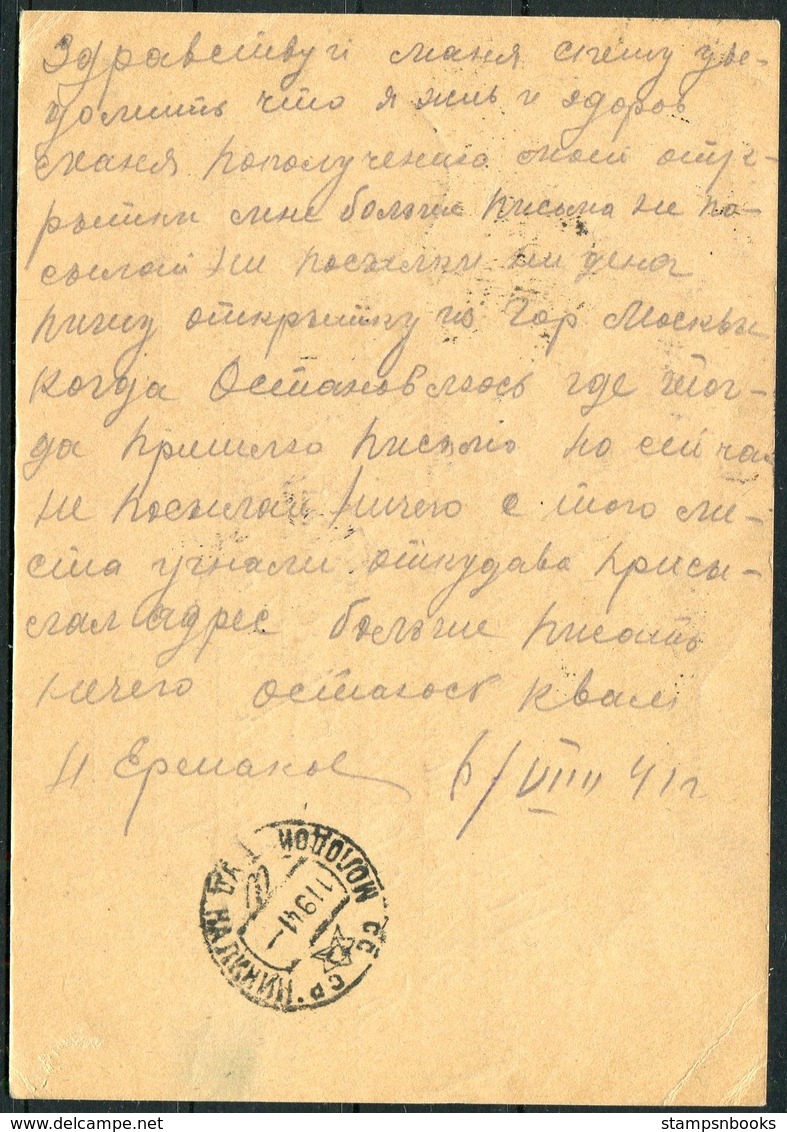 Здравствуй маня спешу уве-
домить что я жив и здоров
маня пополучению моей отк-
рытки мне больше письма не по-
сылай ни посылки ни денег
пишу открытку из гор Москвы
когда Остановлюсь где тог-
да пришлю письмо но сейча
не посылай ничего с того ме-
ста угнали откудава присы-
лал адрес больше писать
ничего остаюсь квам
Н Ермаков 6/VIII 41г
СССР
1 9 41
stampsnbooks